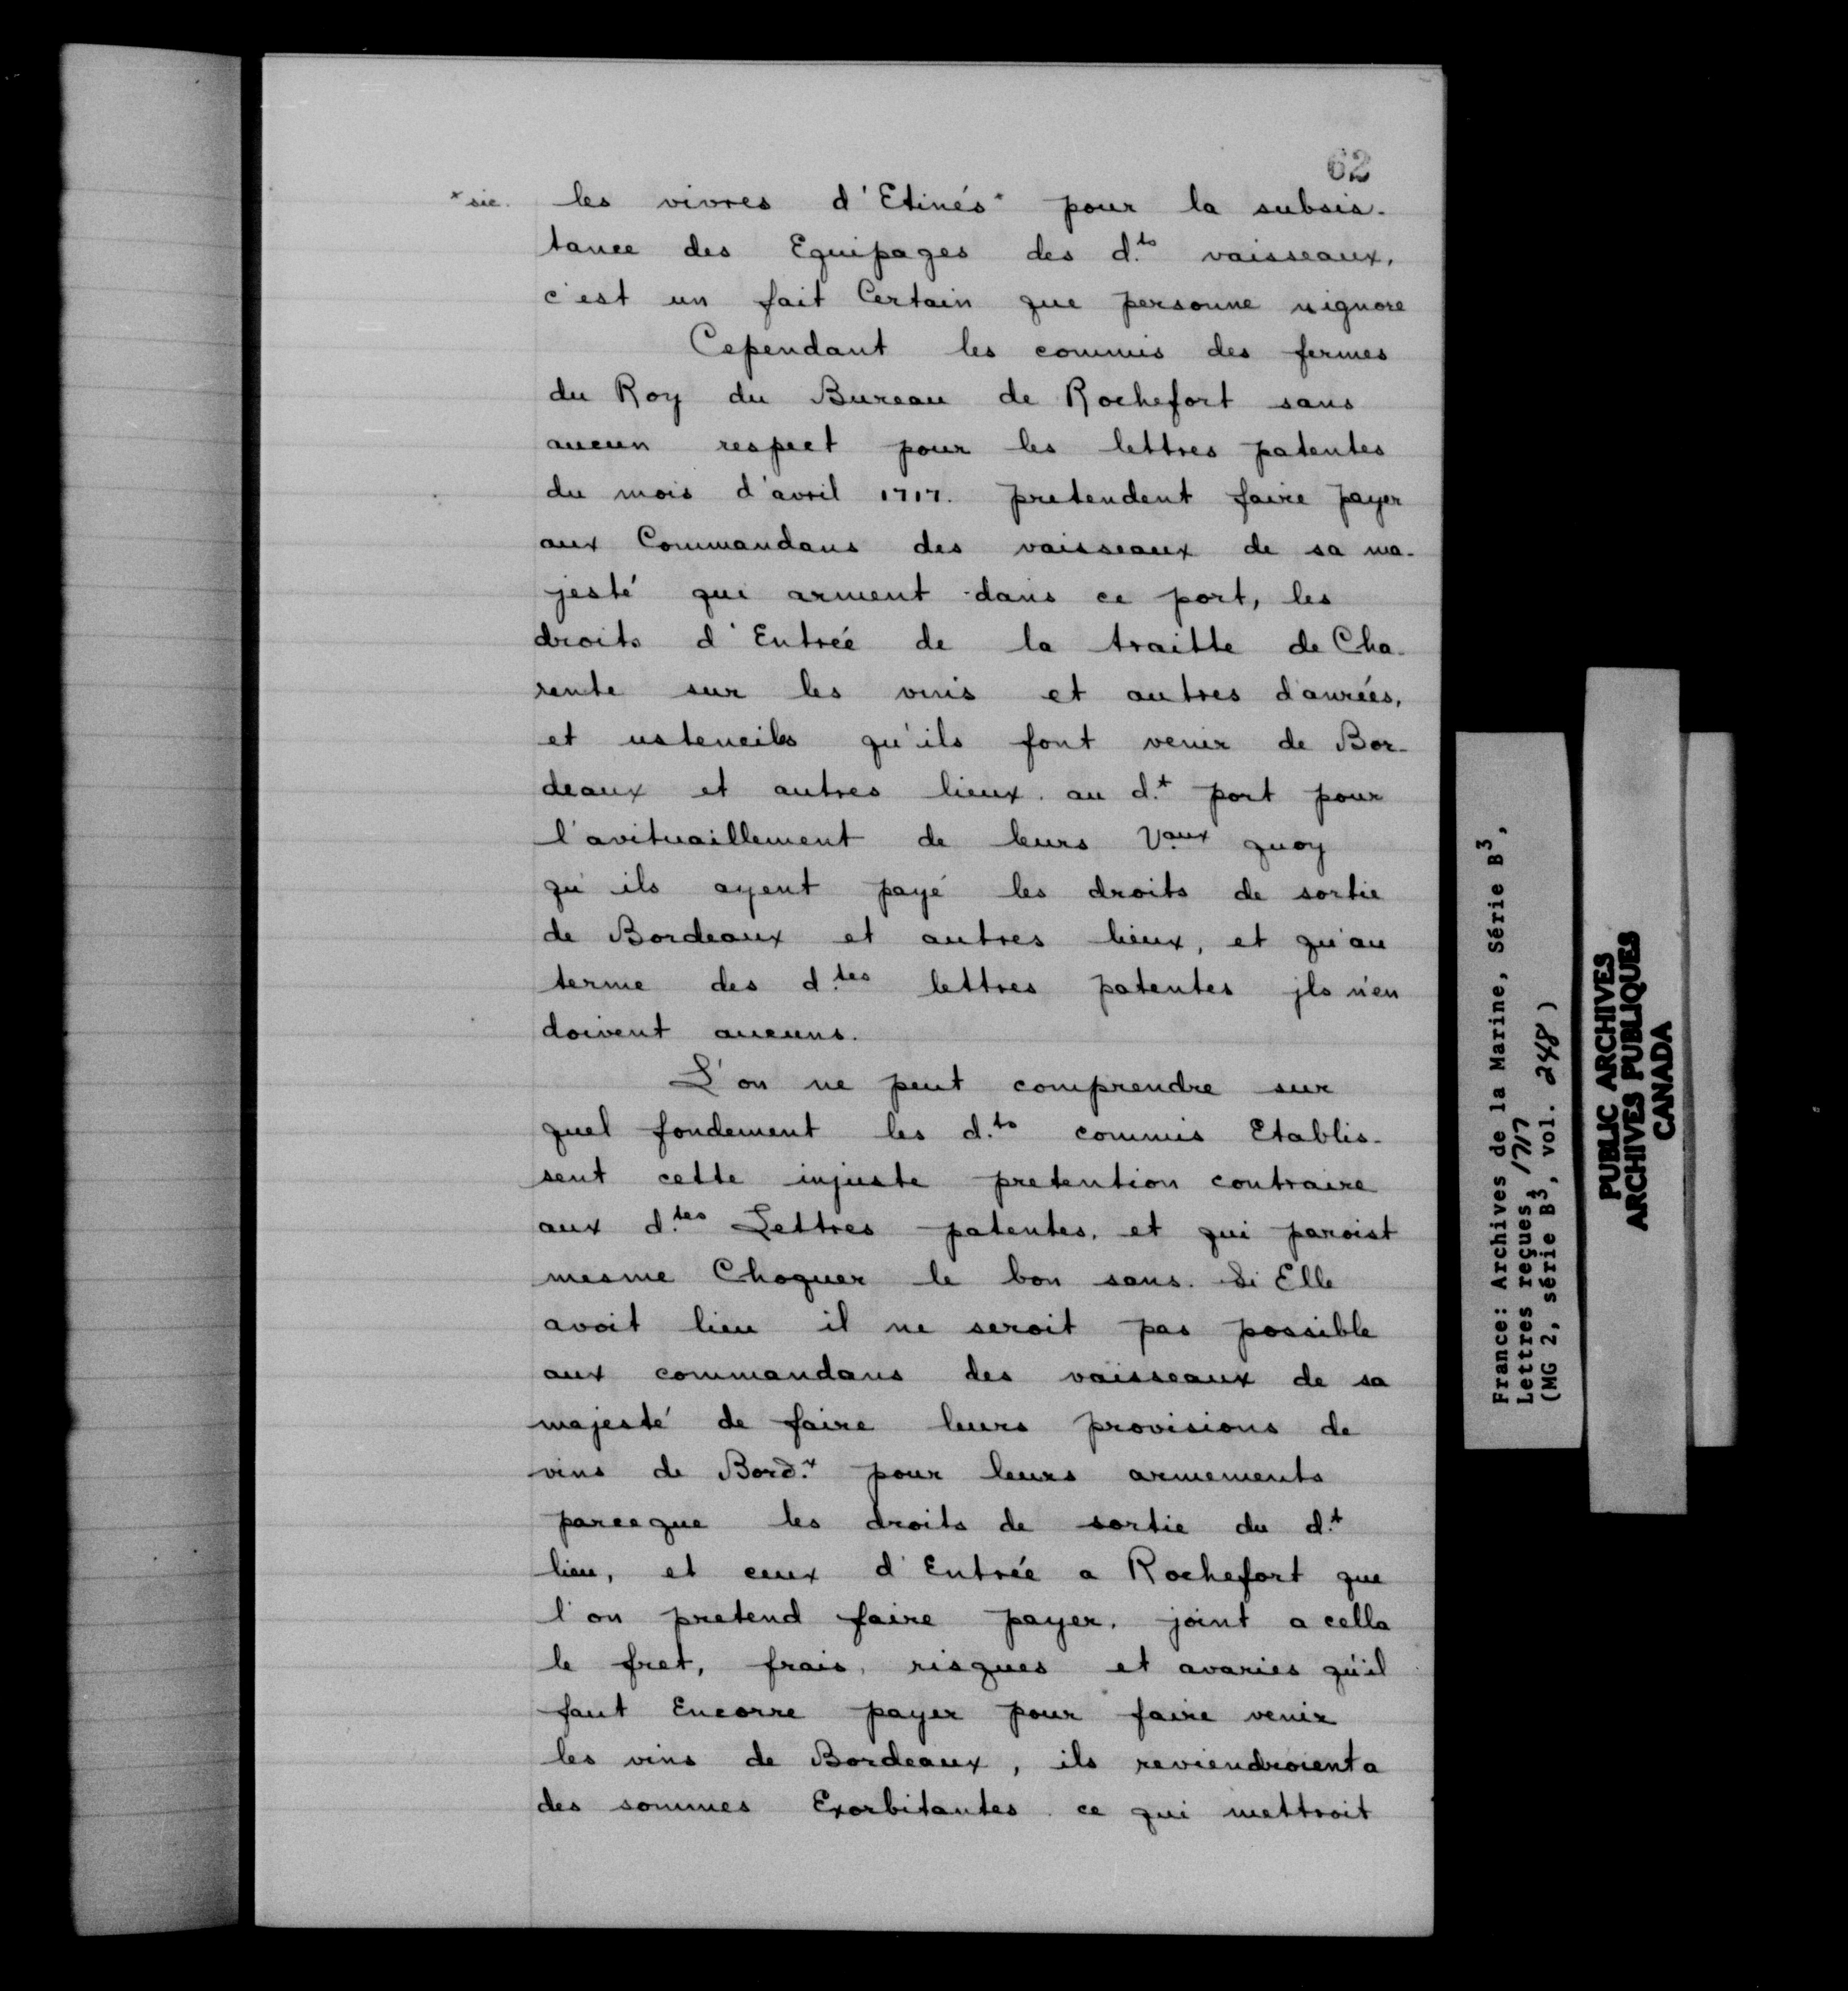 62
* sic.
les vivres d'Etinés * pour la subsis-
tance des Equipages des d.ts vaisseaux,
c'est un fait Certain que personne nignore
Cependant les commis des fermes
du Roy du Bureau de Rochefort sans
aucun respect pour les lettres patentes
du mois d'avril 1717. pretendent faire payer
aux Commandans des vaisseaux de sa ma-
jesté qui arment dans ce port, les
droits d'Entrée de la traitte de Cha-
rente sur les vins et autres danrées,
et ustenciles qu'ils font venir de Bor-
deaux et autres lieux au d.t port pour
l'avituaillement de leurs V.aux quoy
qu'ils ayent payé les droits de sortie
de Bordeaux et autres lieux, et qu'au
terme des d.tes lettres patentes jls n'en
doivent aucuns.
L'on ne peut comprendre sur
quel fondement les d.ts commis Etablis-
sent cette injuste pretention contraire
aux d.tes Lettres patentes, et qui paroist
mesme Choquer le bon sans. Si Elle
avoit lieu il ne seroit pas possible
aux commandans des vaisseaux de sa
majesté de faire leurs provisions de
vins de Bord.x pour leurs armements
parceque les droits de sortie du d.t
lieu, et ceux d'Entrée a Rochefort que
l'on pretend faire payer, joint a cella
le fret, frais, risques et avaries qu'il
faut Encorre payer pour faire venir
les vins de Bordeaux, ils reviendroient a
des sommes Exorbitantes ce qui mettroit
France: Archives de la Marine, Série B3,
Lettres reçues, 1717
(MG 2, série B3, vol. 248)
PUBLIC ARCHIVES
ARCHIVES PUBLIQUES
CANADA